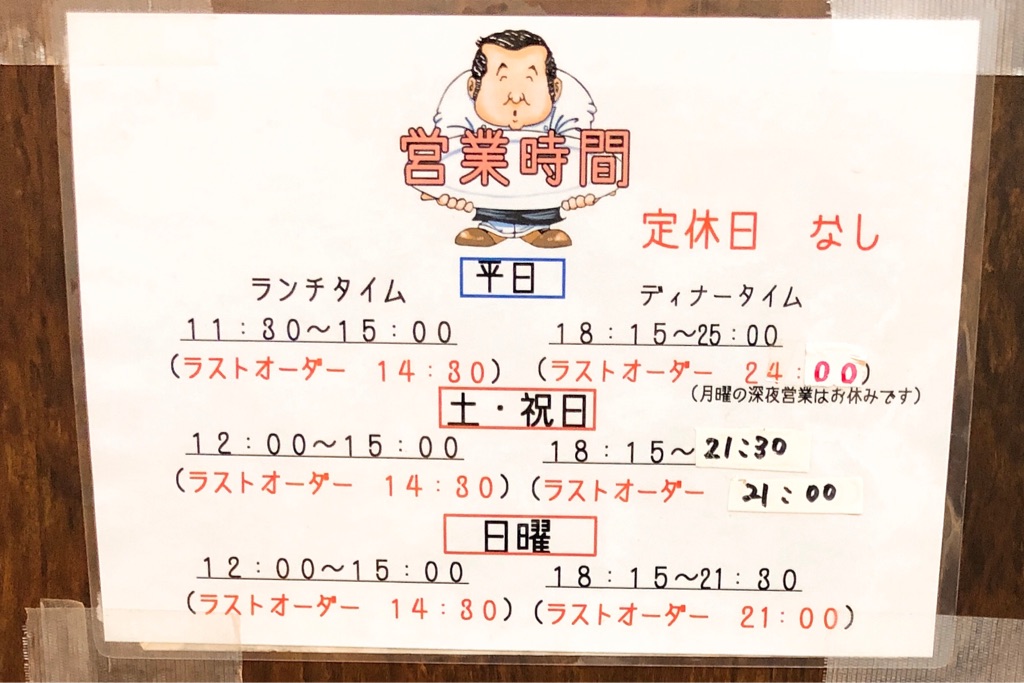 営業時間
定休日　なし
平日
ランチタイム　ディナータイム
11：30～15：00　18：15～25：00
（ラストオーダー　14：30）（ラストオーダー　24：00）
（月曜の深夜営業はお休みです）
土・祝日
12：00～15：00　18：15～21：30
（ラストオーダー　14：30）（ラストオーダー　21：00
日曜
12：00～15：00　18：15～21：30
（ラストオーダー　14：30）（ラストオーダー　21：00）